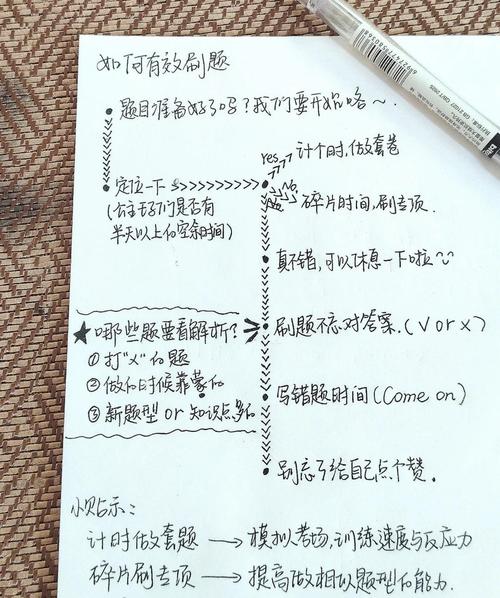 如何有效刷题
题目准备好了吗?我们要开始咯~.
yes 计个时,做套卷
定位一下
No 碎片时间,刷专项.
(公主王子们是否有
半天以上的空余时间)
真不错,可以休息一下啦
★哪些题要看解析?
刷题不忘对答案.(√or×)
①打"×"的题
②做的时候靠蒙的
写错题时间(Come on)
③新题型 or 知识点多的
别忘了给自己点个赞.
小贴示:
计时做套题 → 模拟考场,训练速度与反应力
碎片刷专项 → 提高做相似题型的能力.